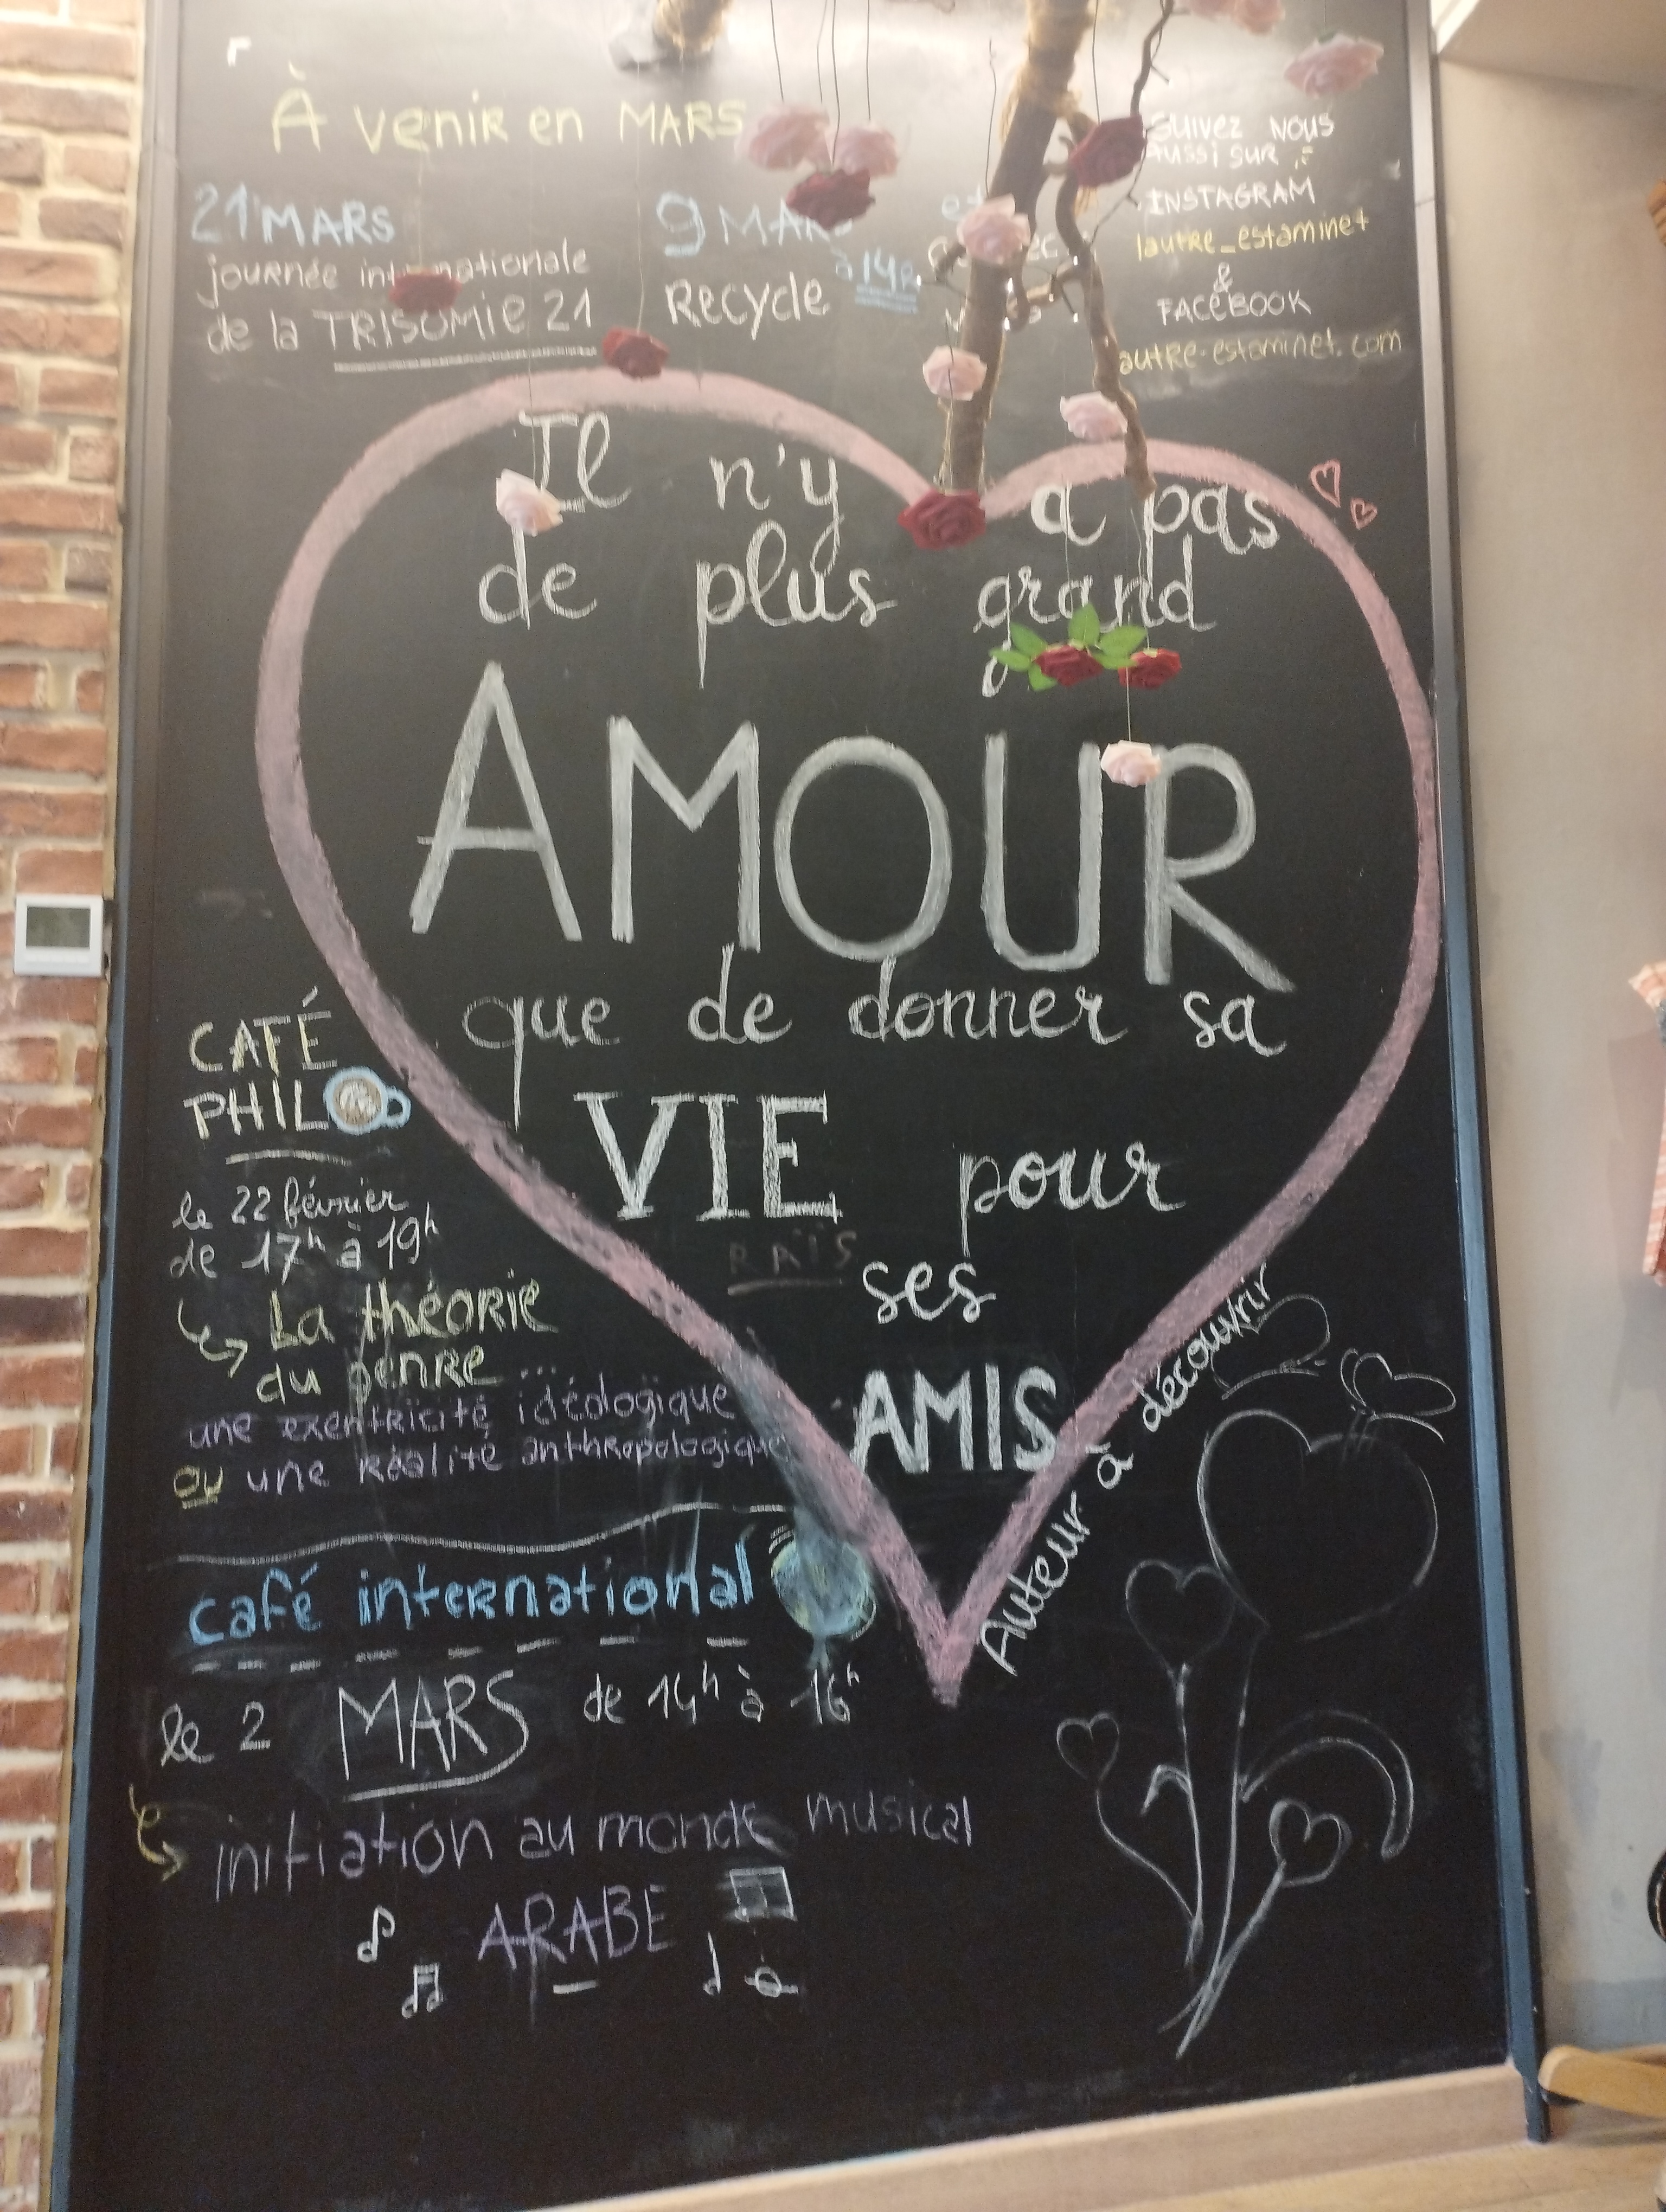 À venir en MARS
21 MARS
journée internationale
de la TRISOMIE 21
9 MARS
à 14h
Recycle
SUIVEZ NOUS
AUSSI SUR :
INSTAGRAM
lautre_estaminet
&
FACEBOOK
autre-estaminet.com
Il n'y a pas
de plus grand
AMOUR
que de donner sa
VIE pour
RAÏS
ses
AMIS
Auteur à découvrir
CAFÉ
PHILO
le 22 février
de 17h à 19h
La théorie
du genre ...
une exentricité idéologique
ou une réalité anthropologique
café international
le 2 MARS de 14h à 16h
initiation au monde musical
ARABE